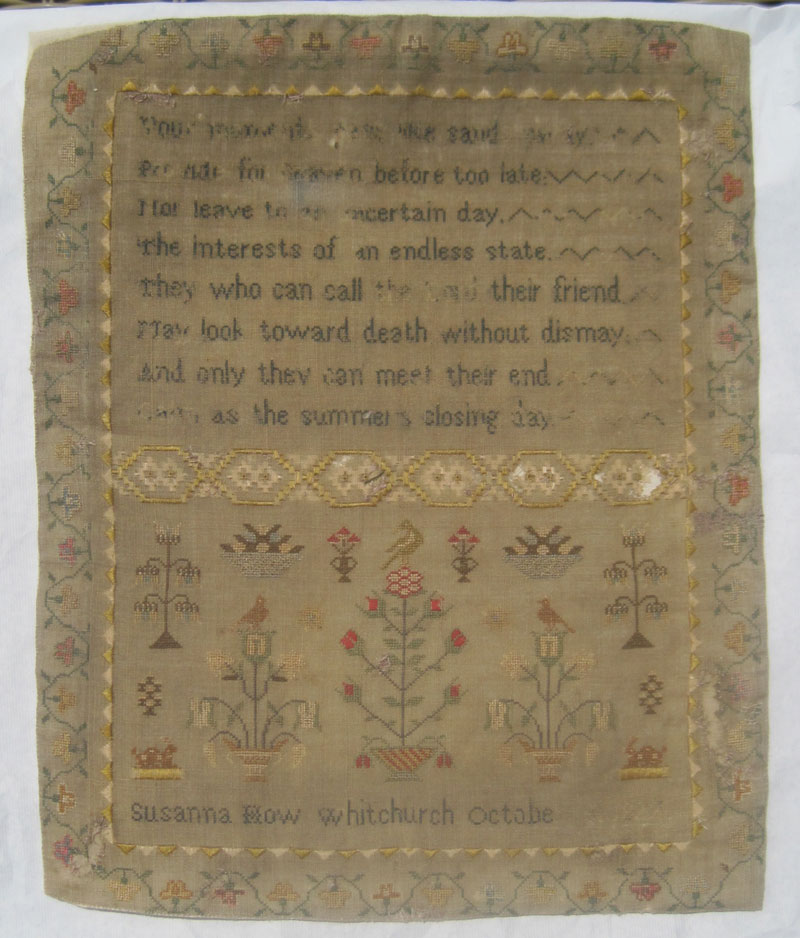 Your moments pass like sand away
Provide for heaven before too late
Nor leave to an uncertain day,
The interests of an endless state.
They who can call the Lord their friend
May look toward death without dismay,
And only they can meet their end
as the summers closing day
Susanna How Whitchurch Octobe